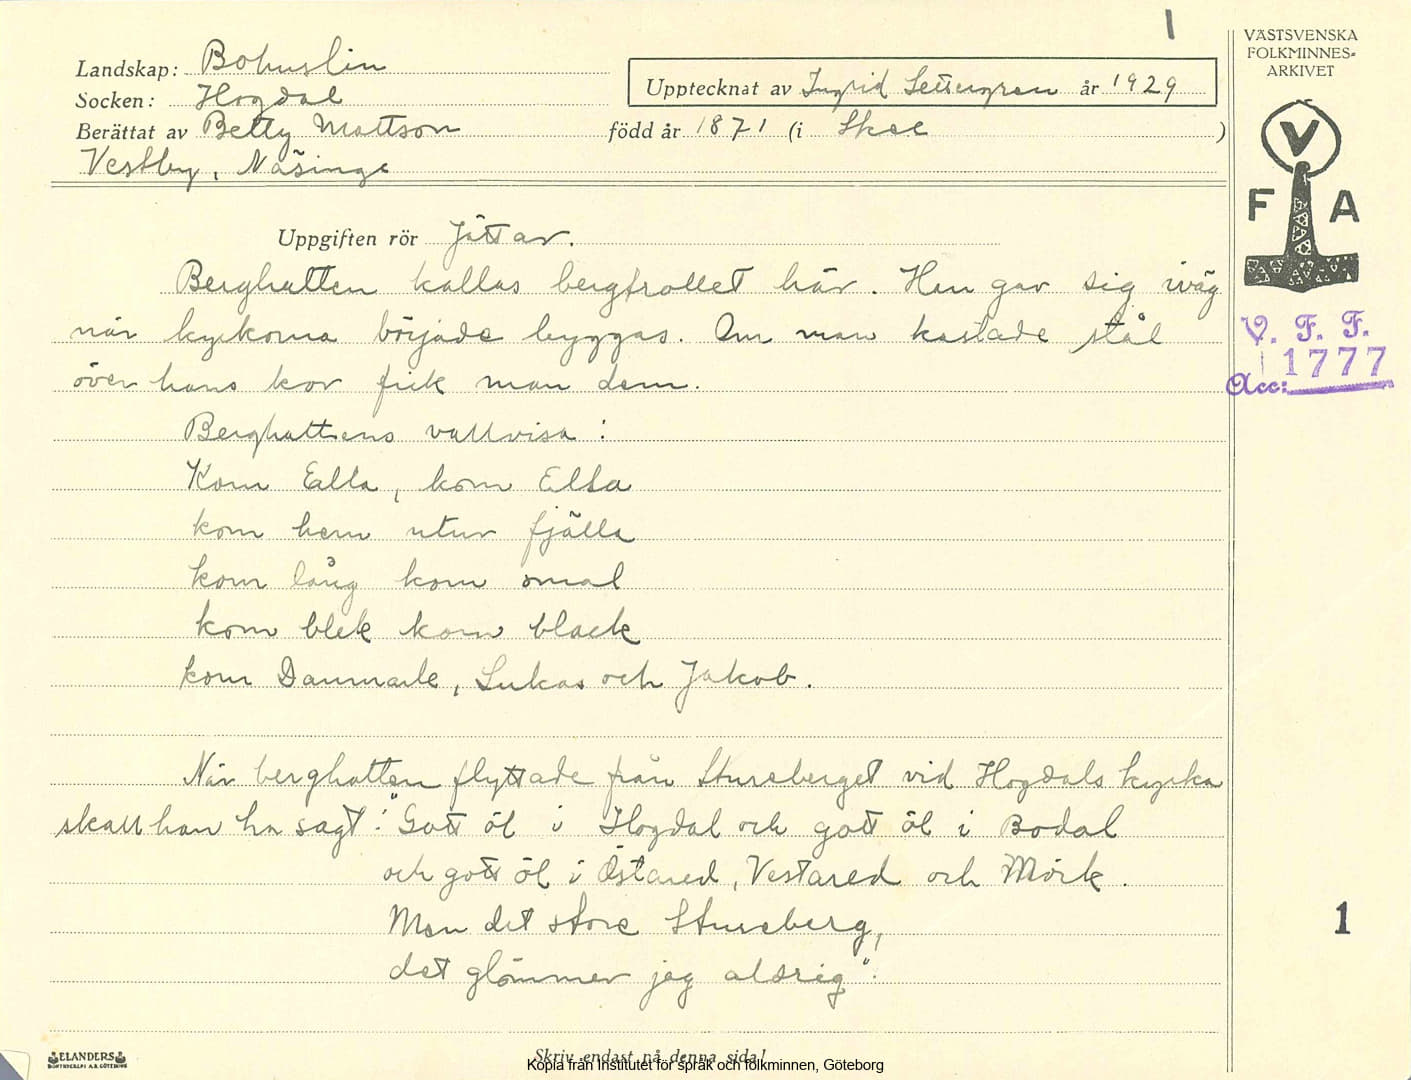 1
VÄSTSVENSKA
FOLKMINNES-
ARKIVET
Landskap: Bohuslän
Socken: Hogdal
Upptecknat av Ingrid Settergren år 1929
Berättat av Betty Mattson född år 1871 (i Skee )
Vestby, Näsinge
V
F A
Uppgiften rör Jättar.
Berghatten kallas bergtrollet här. Han gav sig iväg
när kyrkorna började byggas. Om man kastade stål
över hans kor fick man dem.
V. F. F.
Acc: 1777
Berghattens vallvisa:
Kom Ella, kom Ella
kom hem utur fjälla
kom lång kom smal
kom blek kom black
kom Danmark, Lukas och Jakob.
När berghatten flyttade från Stureberget vid Hogdals kyrka
skall han ha sagt: "Gott öl i Hogdal och gott öl i Bodal
och gott öl i Östared, Vestared och Mörk.
Men det store Stureberg,
det glömmer jag aldrig".
1
ELANDERS
BOKTRYCKERI A.B. GÖTEBORG
Skriv endast på denna sida!
Kopia från Institutet för språk och folkminnen, Göteborg